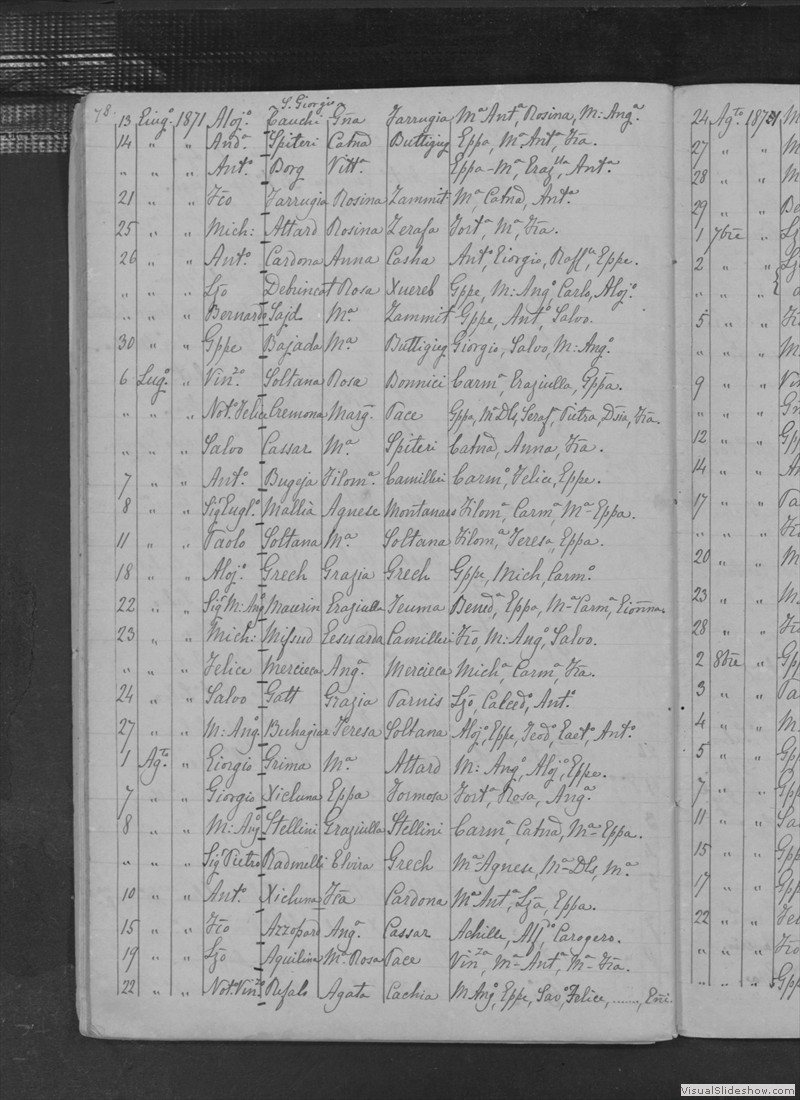 78.
S. Giorgio
13 Giug.º 1871 Aloj.º Tauchi Gña Farrugia Mª Antª, Rosina, M: Angª.
14 " " And.ª Spiteri Catnd Buttigieg Eppa, Mª Antª, Fra.
" " " Ant.º Borg Vittª Eppa - Mª Antª.
21 " " Fco Farrugia Rosina Zammit Mª Catnd, Antª.
25 " " Mich: Attard Rosina Zerafa Fortª, Mª, Fra.
26 " " Ant.º Cardona Anna Casha Antº, Giorgio, Raffll, Eppe.
" " " Ljo Debrincat Rosa Xuereb Gppe, M: Angº, Carlo, Alojº.
" " " Bernardo Sajd Mª Zammit Gppe, Antº, Salvo.
30 " " Gppe Bajada Mª Buttigieg Giorgio, Salvo, M: Angº.
6 Lugº " Vinzº Soltana Rosa Bonnici Carmª, Graziulla, Gppa.
" " " Notº Felice Cremona Marg. Pace Gppa, Mª Dls, Seraf, Pietra, Fra.
" " " Salvo Cassar Mª Spiteri Catnd, Anna, Fra.
7 " " Ant.º Bugeja Filomª Camilleri Carmº, Felice, Eppe.
8 " " Sigr Eugl.º Mallia Agnese Montanaro Filomª, Carmª, Mª Eppa.
11 " " Paolo Soltana Mª Soltana Filomª, Teresa, Eppa.
18 " " Aloj.º Grech Grazia Grech Gppe, Mich, Carmº.
22 " " Sigr M: Angº Maurin Graziulla Teuma Benedª, Eppa, Mª Carmª,
23 " " Mich: Mifsud Gesuarda Camilleri Fco, M: Angº, Salvo.
" " " Felice Mercieca Angª. Mercieca Michª, Carmª, Fra.
24 " " Salvo Gatt Grazia Parnis Ljo, Calcedº, Antº.
27 " " M: Angº. Buhagiar Teresa Soltana Alojº, Eppe, Teodº, Gaetº, Antº.
1 Agto " Giorgio Grima Mª Attard M: Angº, Alojº, Eppe.
7 " " Giorgio Xicluna Eppa Formosa Fortª, Rosa, Angª.
8 " " M: Angº Stellini Graziulla Stellini Carmª, Catnd, Mª Eppa.
" " " Sigr Pietro Radmelli Elvira Grech Mª Agnese, Mª Dls, Mª
10 " " Ant.º Xicluna Fra Cardona Mª Antª, Lja, Eppa.
15 " " Fco Azzopard Angª. Cassar Achille, Aljº, Carogero.
19 " " Ljo Aquilina Mª Rosa Pace Vinzª, Mª Antª, Mª Fra.
22 " " Not. Vinzº Refalo Agata Cachia M Angº, Eppe, Savº, Felice, ......., Eñi.
24 Agto 1871 M
27 " " M
28 " " M
29 " " Bo
1 7bre " Ljo
2 " " Ljo
" " "
5 " " Fco
" " " M.
9 " " Vin
" " " Gñ
12 " " Gpp
14 " " An
17 " " Pa
" " " Fco
20 " " M
23 " " M.
28 " " Fco
2 8bre " Gpp
3 " " Pa
4 " " M.
5 " " Gpp
7 " " Gpp
11 " " Sa
15 " " Gpp
17 " " Gpp
22 " " Fel
" " " Fco
" " " Gpp
VisualSlideshow.com